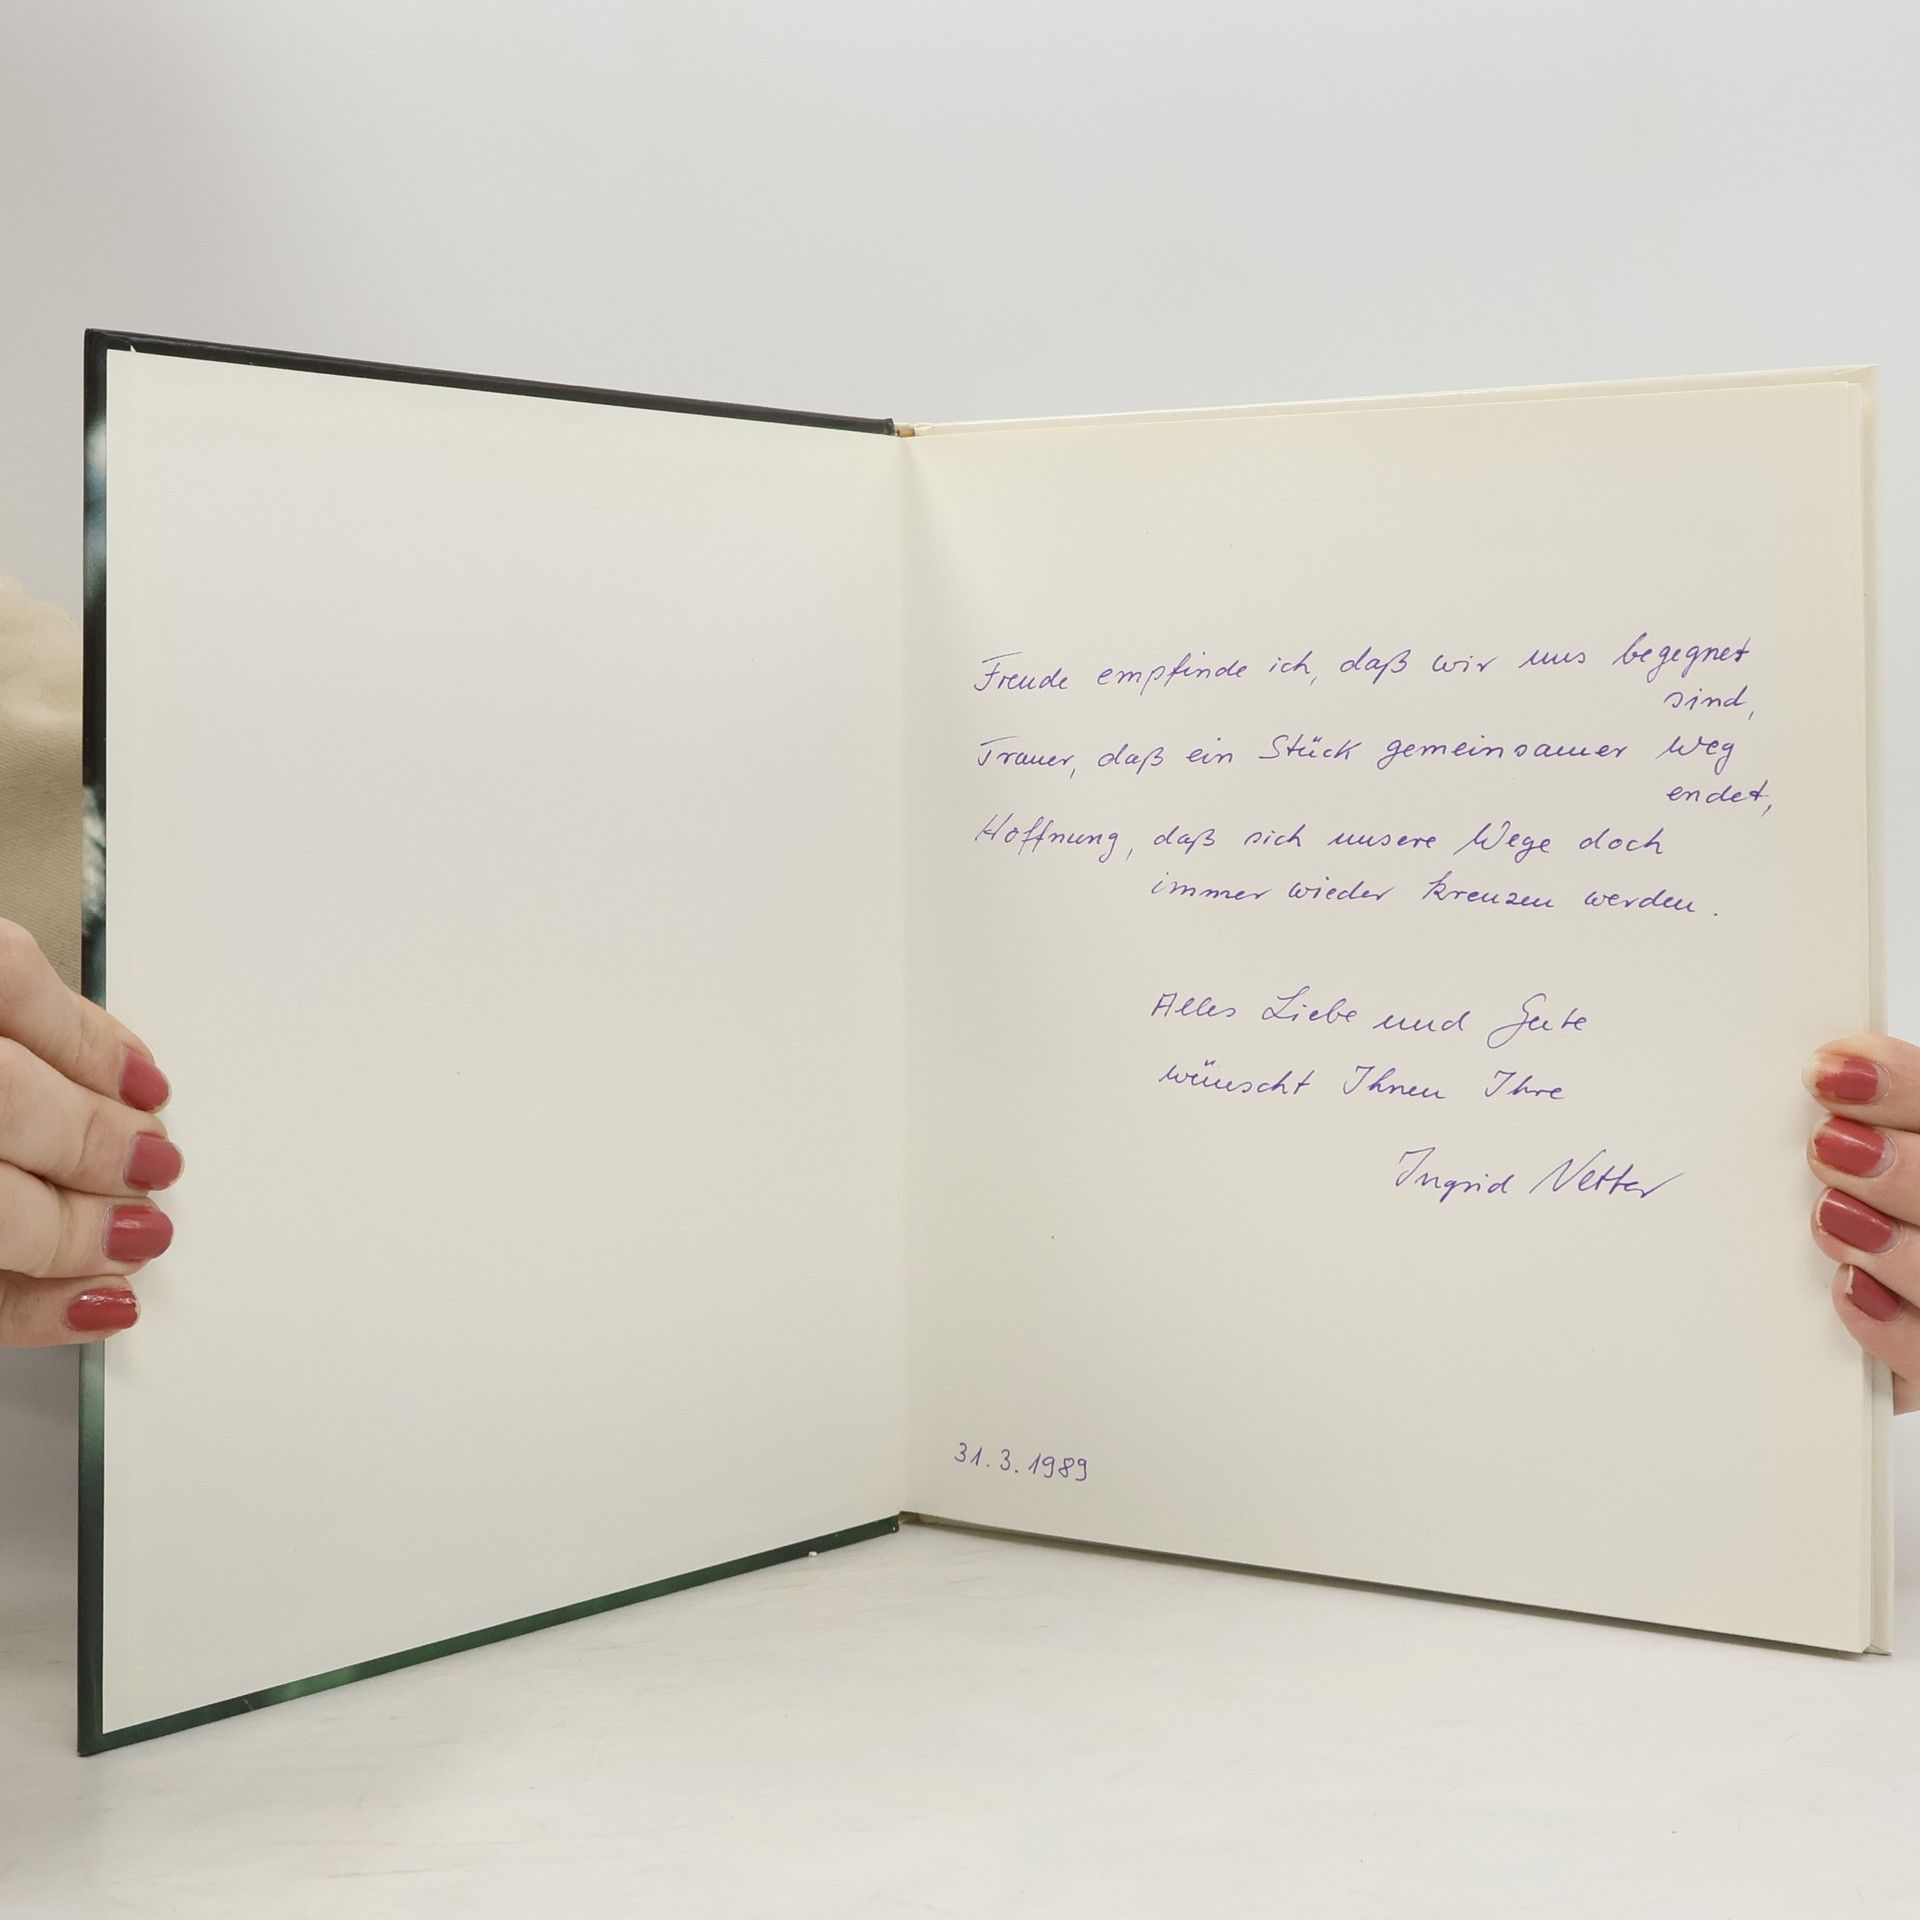 Freude empfinde ich, daß wir uns begegnet
sind,
Trauer, daß ein Stück gemeinsamer Weg
endet,
Hoffnung, daß sich unsere Wege doch
immer wieder kreuzen werden.
Alles Liebe und Gute
wünscht Ihnen Ihre
Ingrid Netter
31.3.1989